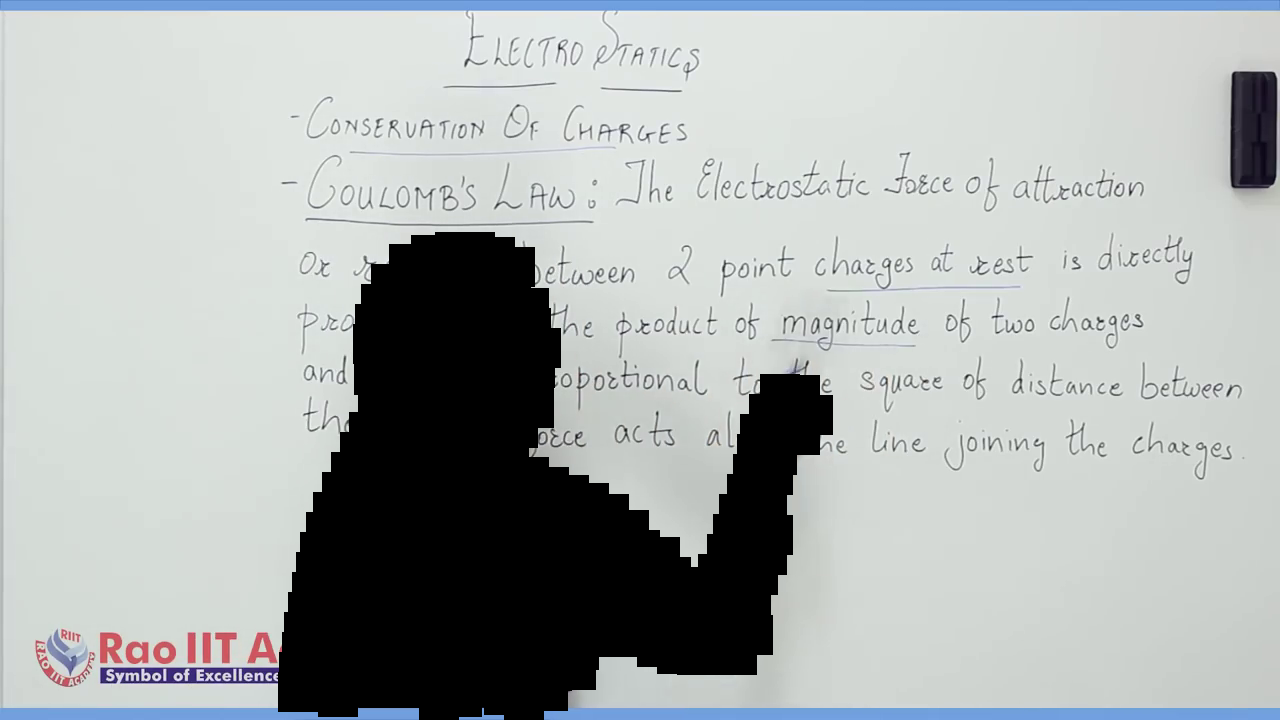 ELECTROSTATICS
- CONSERVATION OF CHARGES
- COULOMB'S LAW: The Electrostatic Force of attraction
or between 2 point charges at rest is directly
the product of magnitude of two charges
and to the square of distance between
acts line joining the charges.
RIIT
RAO IIT ACADEMY
Rao IIT
Symbol of Excellence